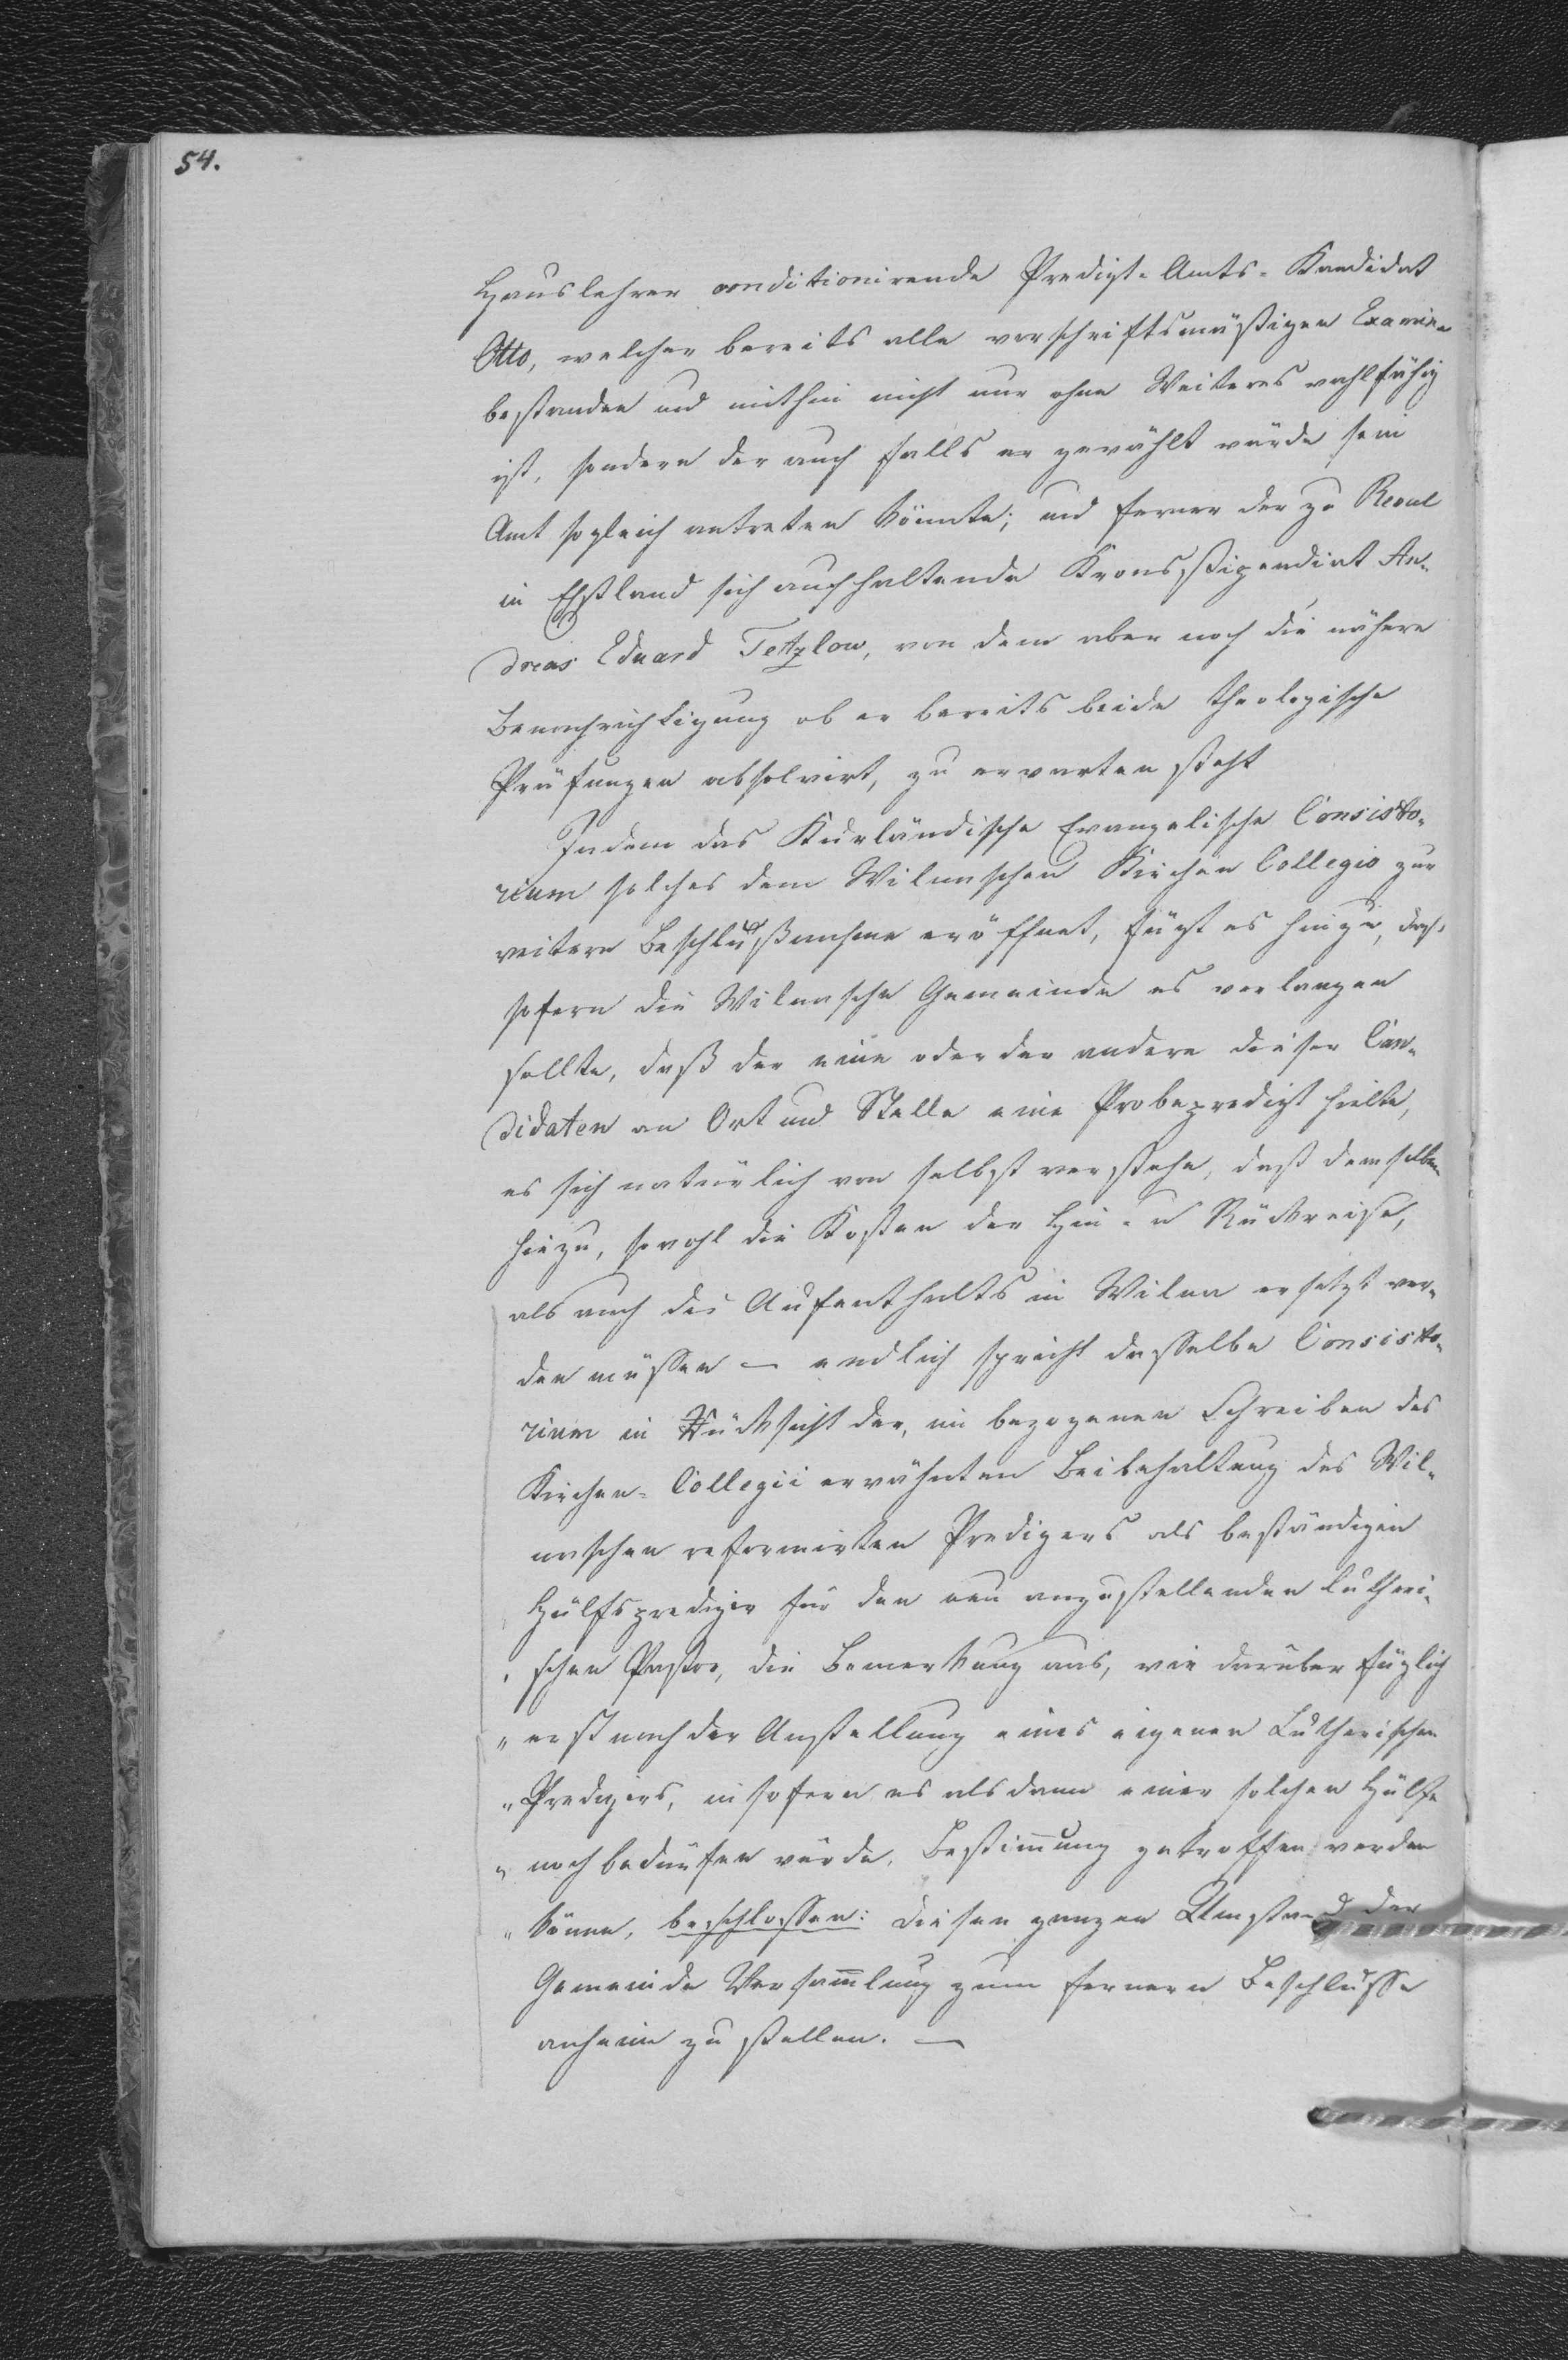 54.
Hauslehrer conditionirende Predigt-Amts-Kandidat
Otto, welcher bereits alle vorschriftsmäßigen Examina
bestanden und mithin nicht nur ohne Weiteres wahlfähig
ist, sondern der auch falls er gewählt würde sein
Amt sogleich antreten könnte; und ferner der zu Reval
in Ehstland sich aufhaltende Kronsstipendiat An-
dreas Eduard Tetzlow, von dem aber noch die nähere
Benachrichtigung ob er bereits beide theologische
Prüfungen absolvirt, zu erwarten steht
Indem das Kurländische Evangelische Consisto-
rium solches dem Wilnaschen Kirchen Collegio zur
weitern Beschlußnahme eröffnet, fügt es hinzu, daß,
sofern die Wilnasche Gemeinde es verlangen
sollte, daß der eine oder der andere dieser Can-
didaten an Ort und Stelle eine Probepredigt hielte,
es sich natürlich von selbst verstehe, daß demselben
hiezu, sowohl die Kosten der Hin- u Rückreise,
als auch des Aufenthalts in Wilna ersetzt wer-
den müssen — endlich spricht dasselbe Consisto-
rium in Rücksicht der, im bezogenen Schreiben des
Kirchen-Collegii erwähnten Beibehaltung des Wil-
naschen reformirten Predigers als beständigen
Hülfsprediger für den neu anzustellenden lutheri-
„ schen Pastor, die Bemerkung aus, wie darüber füglich
„ erst nach der Anstellung eines eigenen Lutherischen
„ Predigers, in sofern es alsdann einer solchen Hülfe
„ noch bedürfen würde, Bestim̅ung getroffen werden
„ könne, beschlossen: diesen ganzen Umstand der
Gemeinde Versam̅lung zum fernern Beschlusse
anheim zu stellen. —